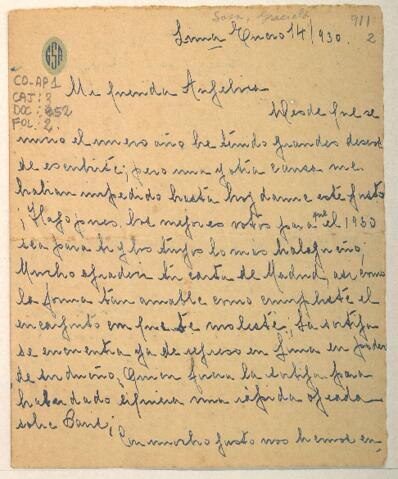 Sosa, Graciela
911
2
GSA
Lima Enero 14/930.
CO-AP1
CAJ: 3
DOC: 852
FOL: 2
Mi querida Angélica
Desde que se
inició el nuevo año he tenido grandes deseos
de escribirte; pero una y otra causa me
habian impedido hasta hoy darme este gusto
; Hago pues, los mejores votos para que el 1930
sea para ti y los tuyos lo más halagueño,
Mucho agradecí tu carta de Madrid, así como
la forma tan amable como cumpliste el
encargo con que te molesté; La sortija
se encuentra ya de regreso en Lima en poder
de su dueño, Quien fuera la sortija para
haber dado siquiera una rápida ojeada
sobre
Con mucho gusto nos hemos en-